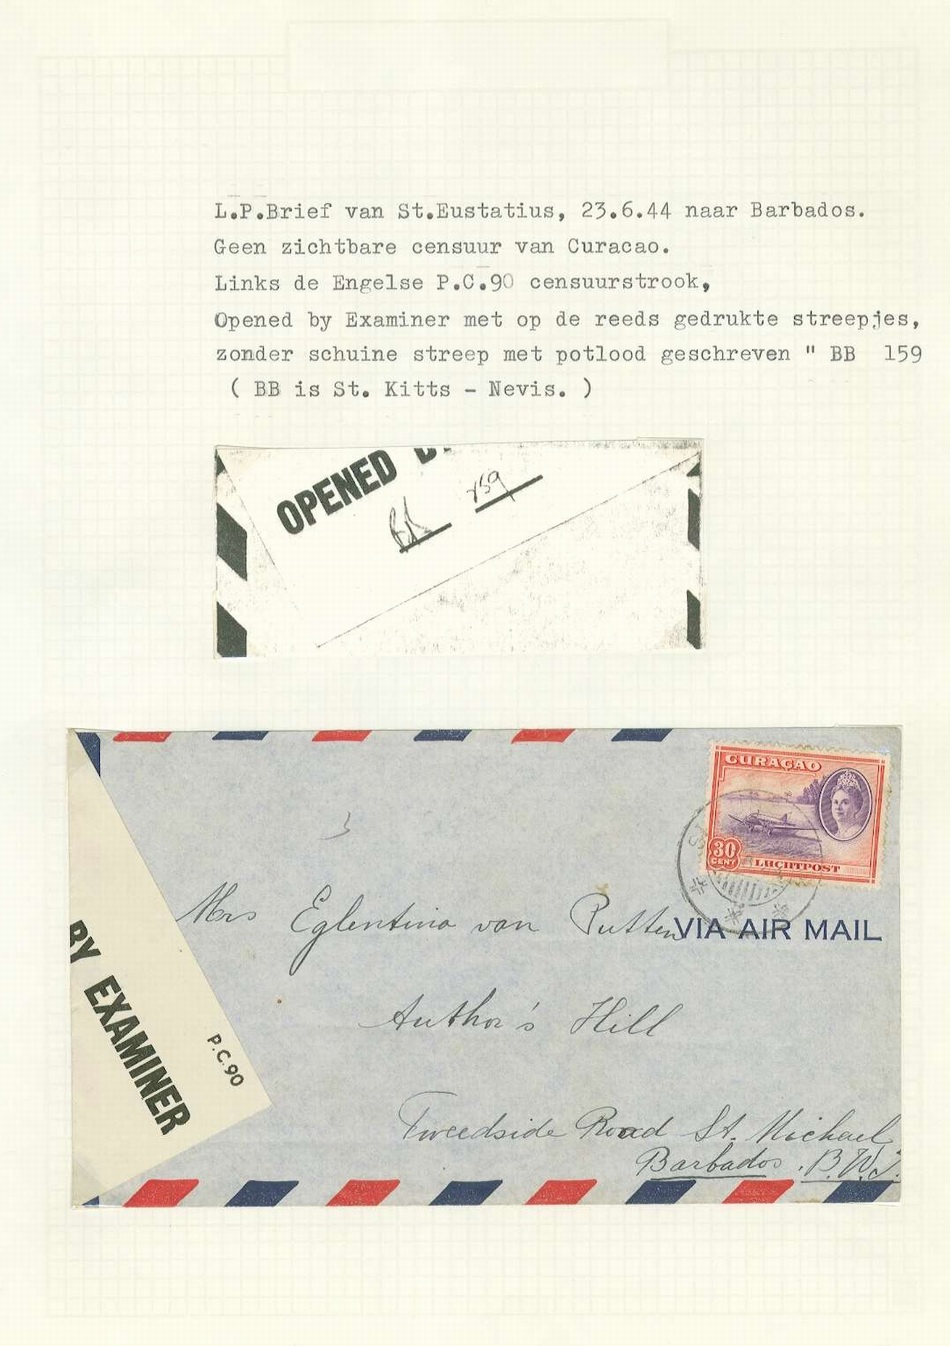 L.P.Brief van St.Eustatius, 23.6.44 naar Barbados.
Geen zichtbare censuur van Curacao.
Links de Engelse P.C.90 censuurstrook,
Opened by Examiner met op de reeds gedrukte streepjes,
zonder schuine streep met potlood geschreven " BB 159
( BB is St. Kitts - Nevis. )
OPENED
BB 159
CURAÇAO
30
CENT
LUCHTPOST
VIA AIR MAIL
BY EXAMINER
P.C.90
Mrs Eglentina van Putten
Author's Hill
Tweedside Road St. Michael
Barbados . B.W.I.